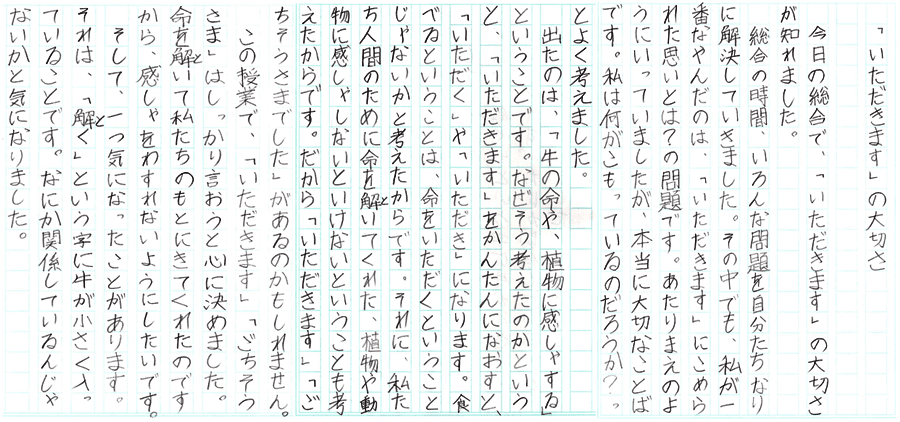 「いただきます」の大切さ
今日の総合で、「いただきます」の大切さ
が知れました。
総合の時間、いろんな問題を自分たちなり
に解決していきました。その中でも、私が一
番なやんだのは、「いただきます」にこめら
れた思いとは？の問題です。あたりまえのよ
うにいっていましたが、本当に大切なことば
です。私は何がこもっているのだろうか？っ
とよく考えました。
出たのは、「牛の命や、植物に感しゃする」
ということです。なぜそう考えたのかという
と、「いただきます」をかんたんになおすと、
「いただく」や「いただき」になります。食
べるということは、命をいただくということ
じゃないかと考えたからです。それに、私た
ち人間のために命を解いてくれた、植物や動
物に感しゃしないといけないということも考
えたからです。だから「いただきます」「ご
ちそうさまでした」があるのかもしれません。
この授業で、「いただきます」「ごちそう
さま」はしっかり言おうと心に決めました。
命を解いて私たちのもとにきてくれたのです
から、感しゃをわすれないようにしたいです。
そして、一つ気になったことがあります。
それは、「解く」という字に牛が小さく入っ
ていることです。なにか関係しているんじゃ
ないかと気になりました。